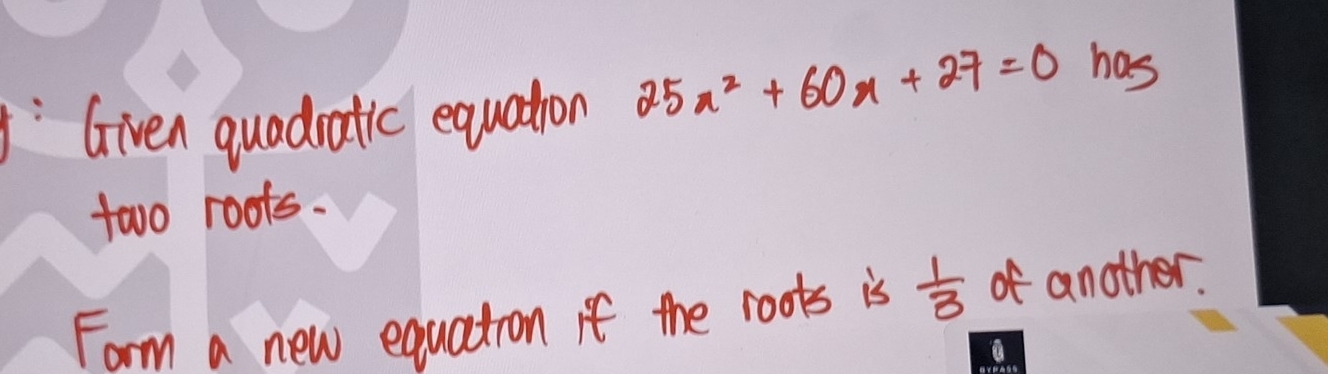 : Given quadratic equation 25x² + 60x + 27 = 0 has
two roots.
Form a new equation if the roots is 1/3 of another.
BYPASS